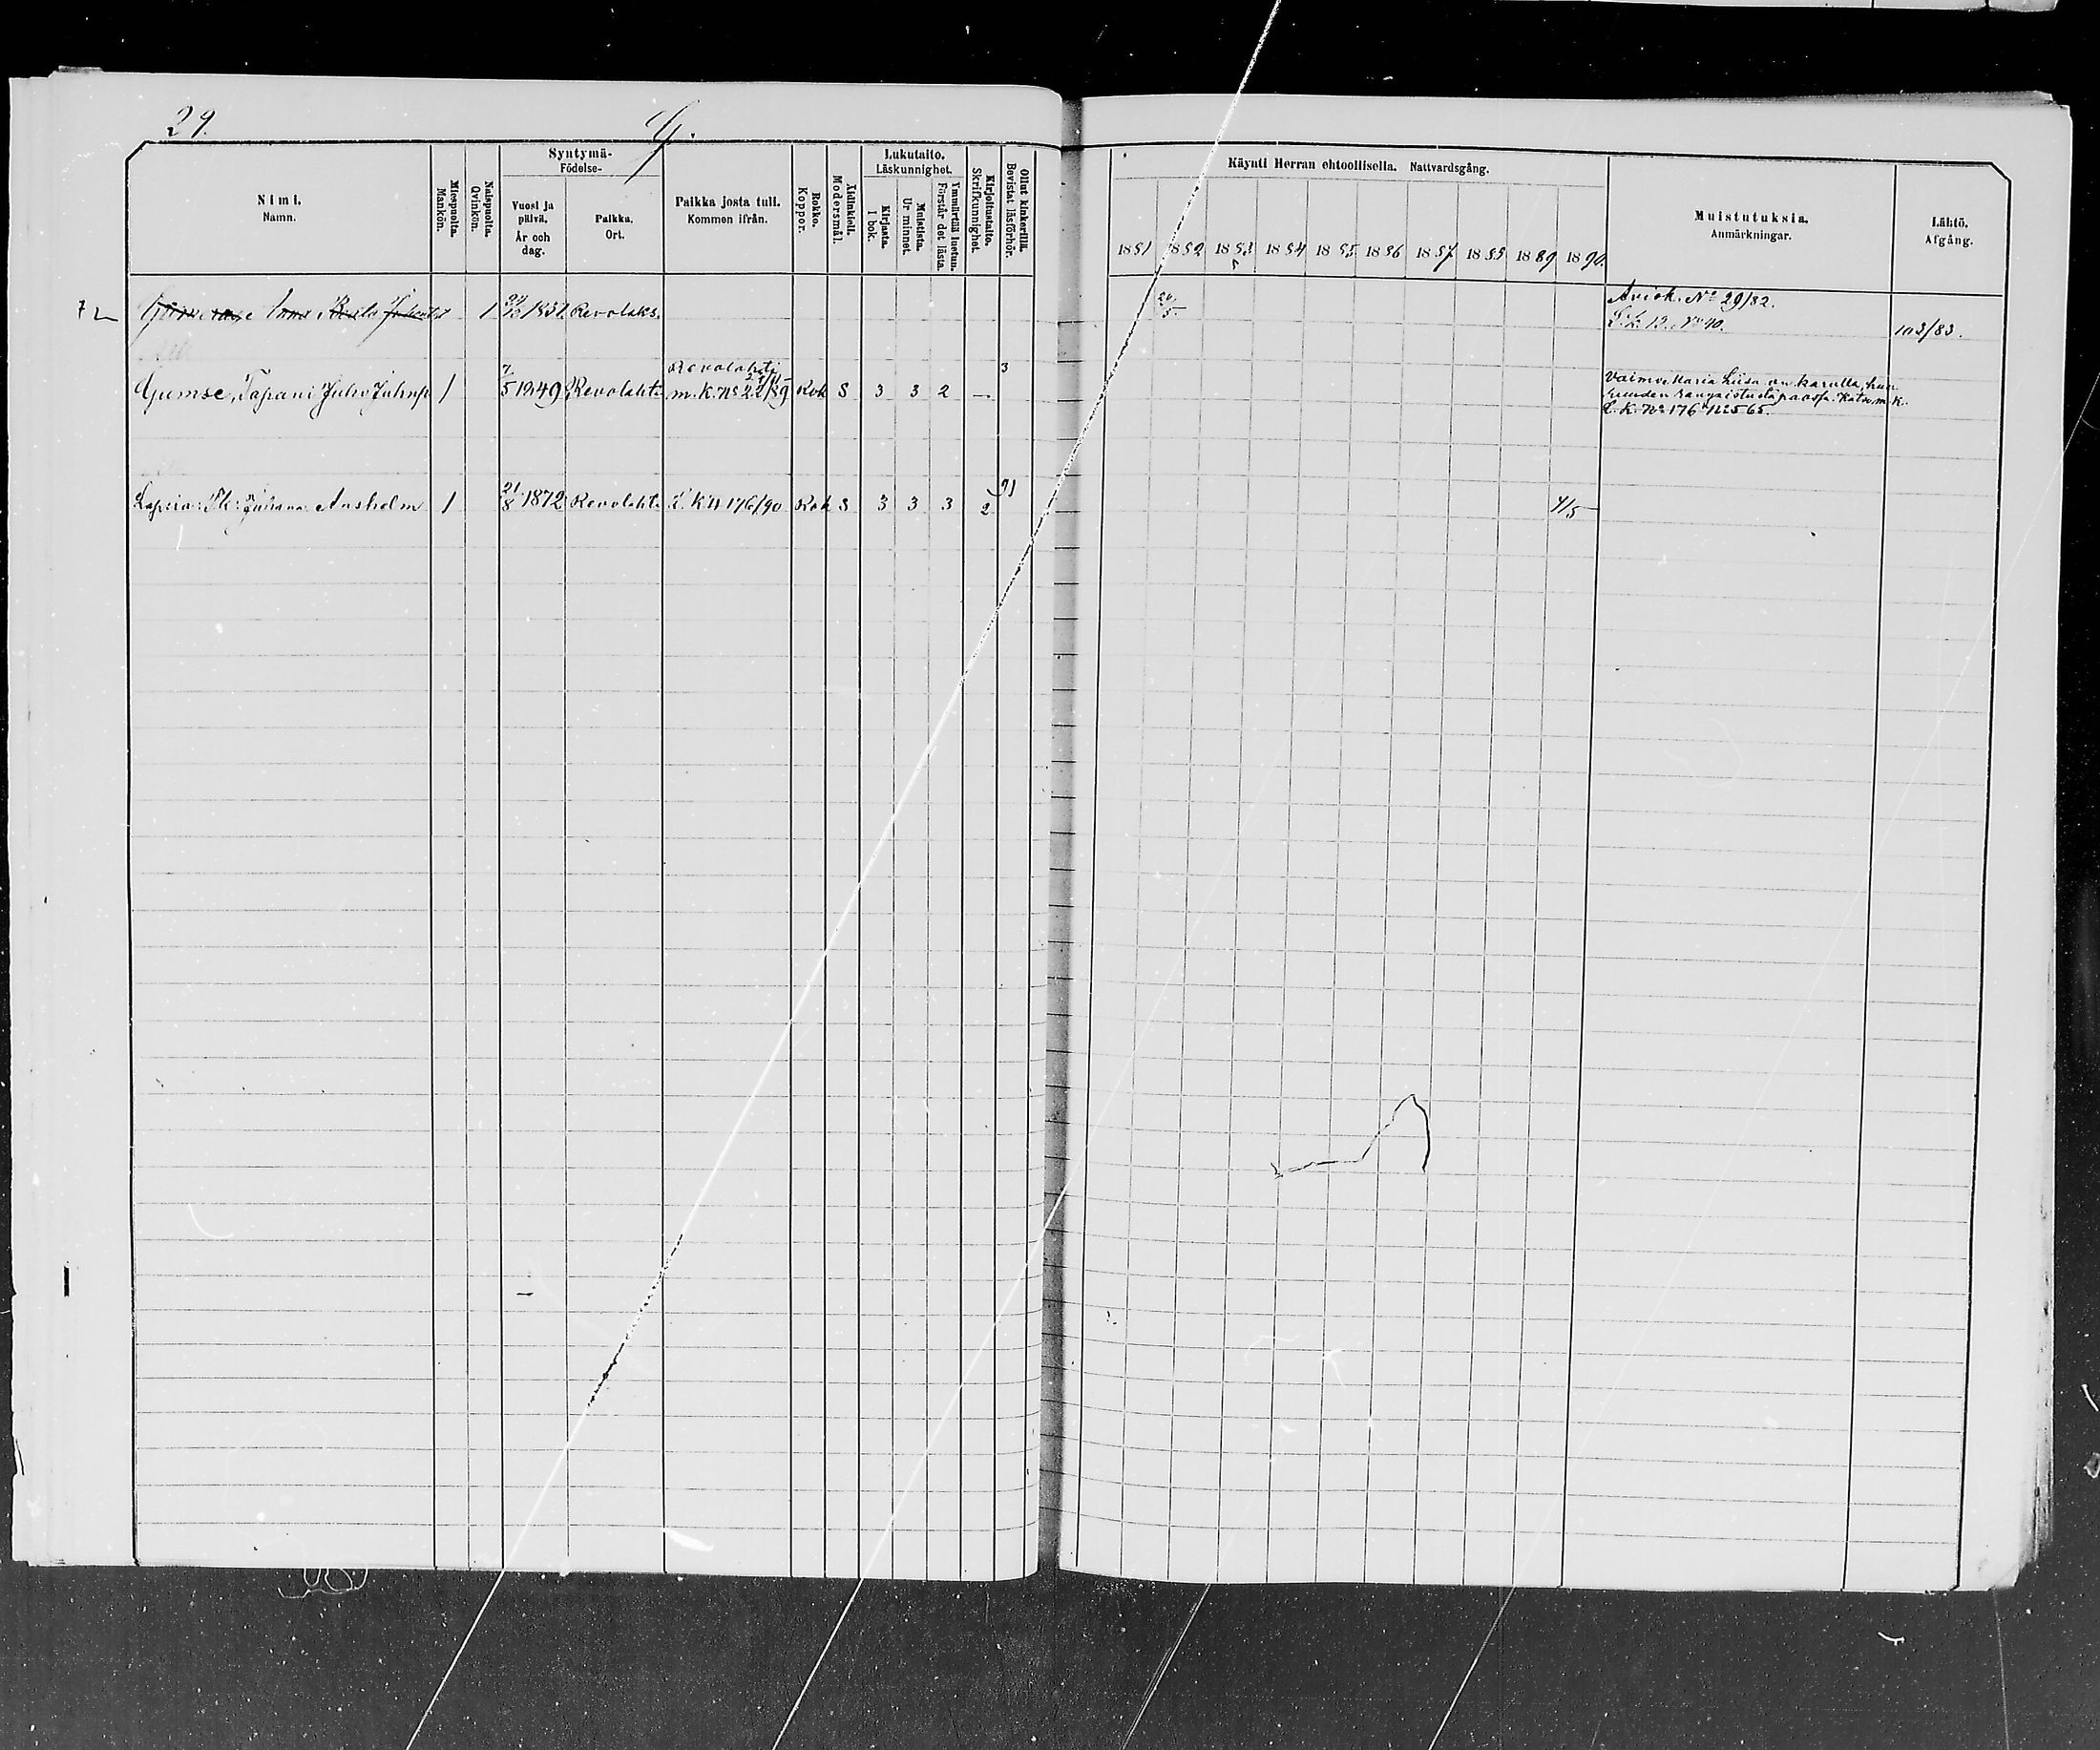 29. G.
Nimi. Namn.
Miespuolta. Mankön.
Naispuolta. Qvinkön.
Syntymä- Födelse-
Vuosi ja päivä. År och dag.
Paikka. Ort.
Paikka josta tuli. Kommen ifrån.
Rokko. Koppor.
Äidinkieli. Modersmål.
Lukutaito. Läskunnighet.
Kirjasta. I bok.
Muistista. Ur minnet.
Ymmärtää luetun. Förstår det lästa.
Kirjoitustaito. Skrifkunnighet.
Ollut kinkerillä. Bevistat läsförhör.
Käynti Herran ehtoollisella. Nattvardsgång.
1881 1882 1883 1884 1885 1886 1887 1888 1889 1890.
Muistutuksia. Anmärkningar.
Lähtö. Afgång.
1 1851 Revolaks. 20/5 Aviok. No 29/82.
L.k. 13. No 40. 103/83.
Revolahti
Gumse, Tapani Juho Juhnp 1 7/5 1849 Revolahti m.k. No 22/89 Rok S 3 3 2 — 3
Vaimo Maria Liisa on karulla, hun
L.K. No 176 No 565.
Lapsia: Th: Juhana Ansholm 1 21/8 1872 Revolahti L K N 176/90 Rok S 3 3 3 2 91 4/5